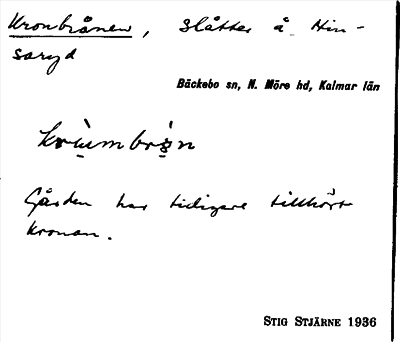 Kronbrånen, slåtter å Hin-
saryd
Bäckebo sn, N. Möre hd, Kalmar län
krùmbrån
Gården har tidigare tillhört
kronan.
STIG STJÄRNE 1936